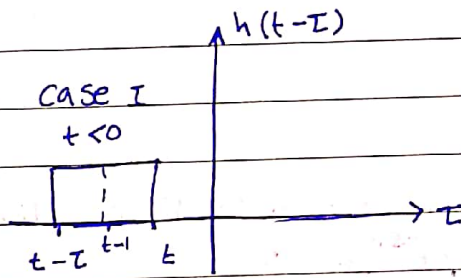 h(t-τ)
Case I
t<0
τ
t-τ t-1 t